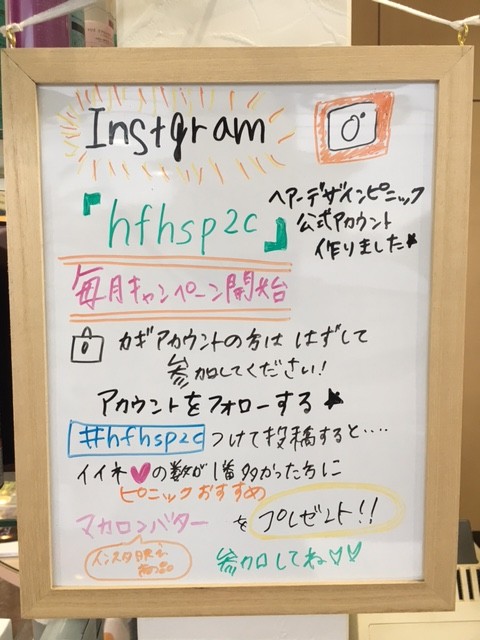 Instgram
「hfhsp2c」
ヘアーデザインピニック
公式アカウント
作りました★
毎月キャンペーン開始
カギアカウントの方は はずして
参加してください!
アカウントをフォローする★
#hfhsp2c つけて投稿すると‥‥
イイネ♥の数が1番多かった方に
ピニックおすすめ
マカロンバター を プレゼント!!
インスタ映え
商品
参加してね♡♡